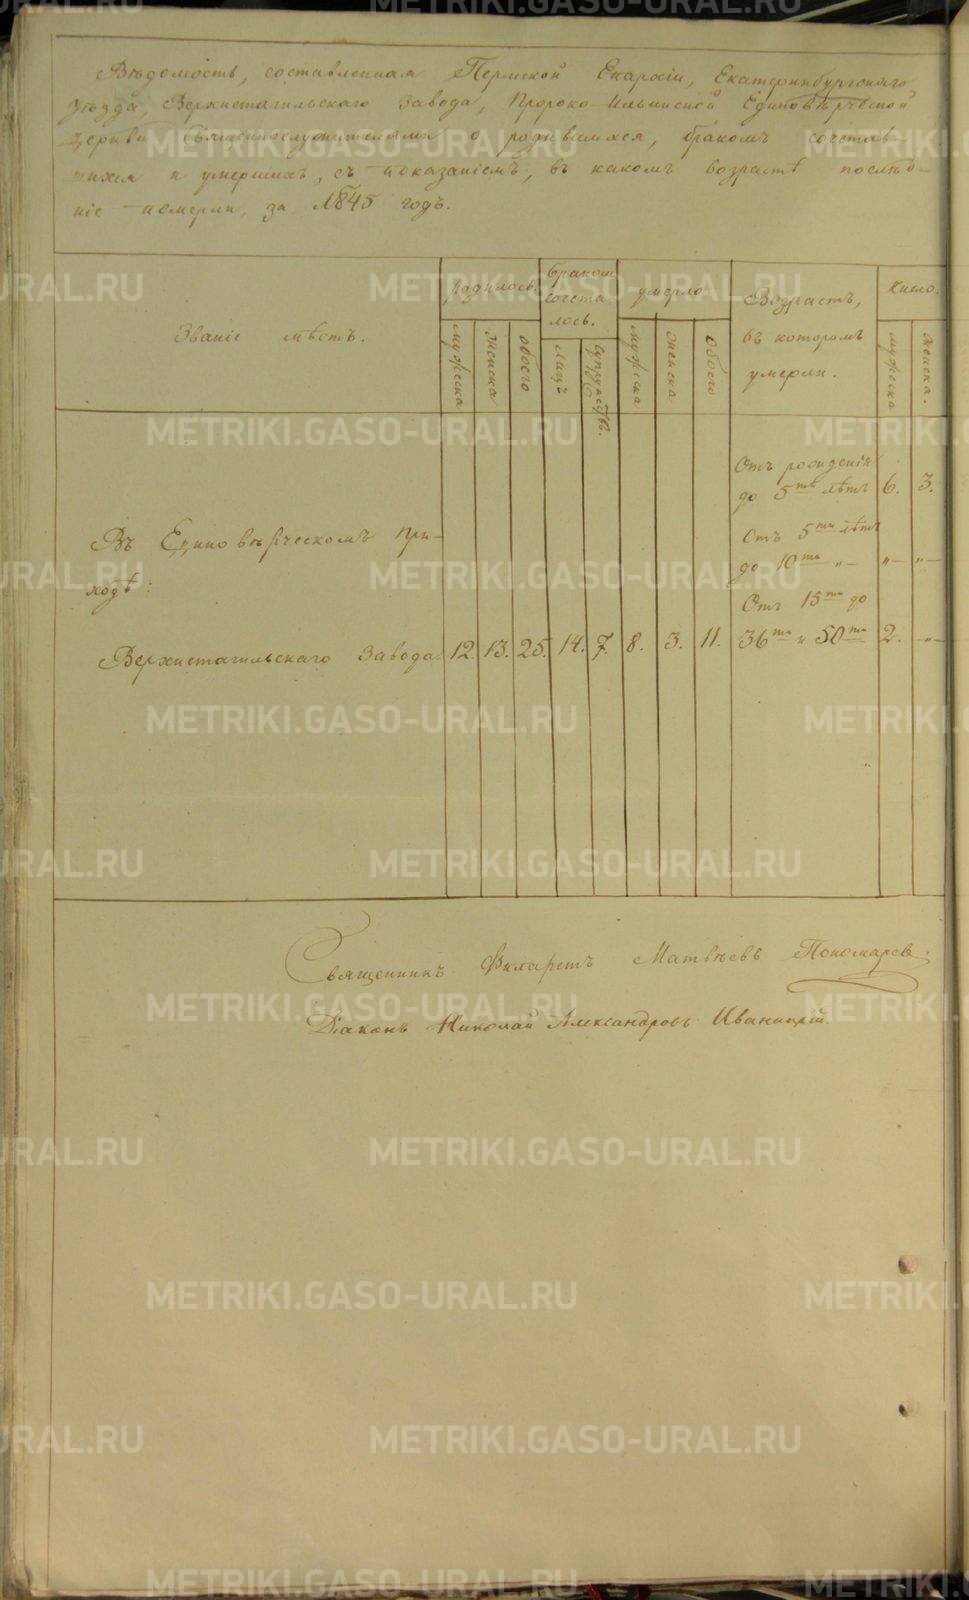 Вѣдомость, составленная Пермской Епархіи, Екатеринбургскаго
уѣзда, Верхнетагильскаго Завода, Пророко-Ильинской Единовѣрческой
Церкви Священнослужителями о родившихся, бракомъ сочетав-
шихся и умершихъ, съ показаніемъ, въ какомъ возрастѣ послѣд-
ніе померли, за 1845 годъ.
Званіе мѣстъ.
родилось
мужеска
женска
обоего
бракомъ сочеталось.
лицъ
супружествъ.
умерло
мужеска
женска
обоего
Возрастъ,
въ которомъ
умерли.
Число.
мужеска
женска.
Отъ рожденія
до 5ти лѣтъ 6. 3.
Отъ 5ти лѣтъ
до 10ти „— „— „—
Отъ 15ти до
36ти и 50ти 2. „—
Въ Единовѣрческомъ при-
ходѣ:
Верхнетагильскаго Завода. 12. 13. 25. 14. 7. 8. 3. 11.
Священникъ Филаретъ Матвѣевъ Пономаревъ.
Діаконъ Николай Александровъ Иваницкій.
METRIKI.GASO-URAL.RU